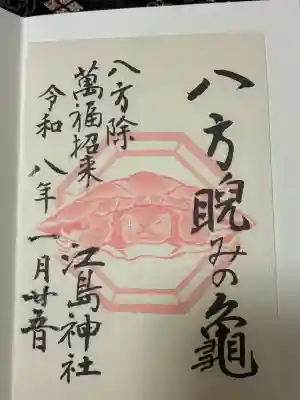 八方睨みの亀
八方除
萬福招来
江島神社
令和八年一月廿五日